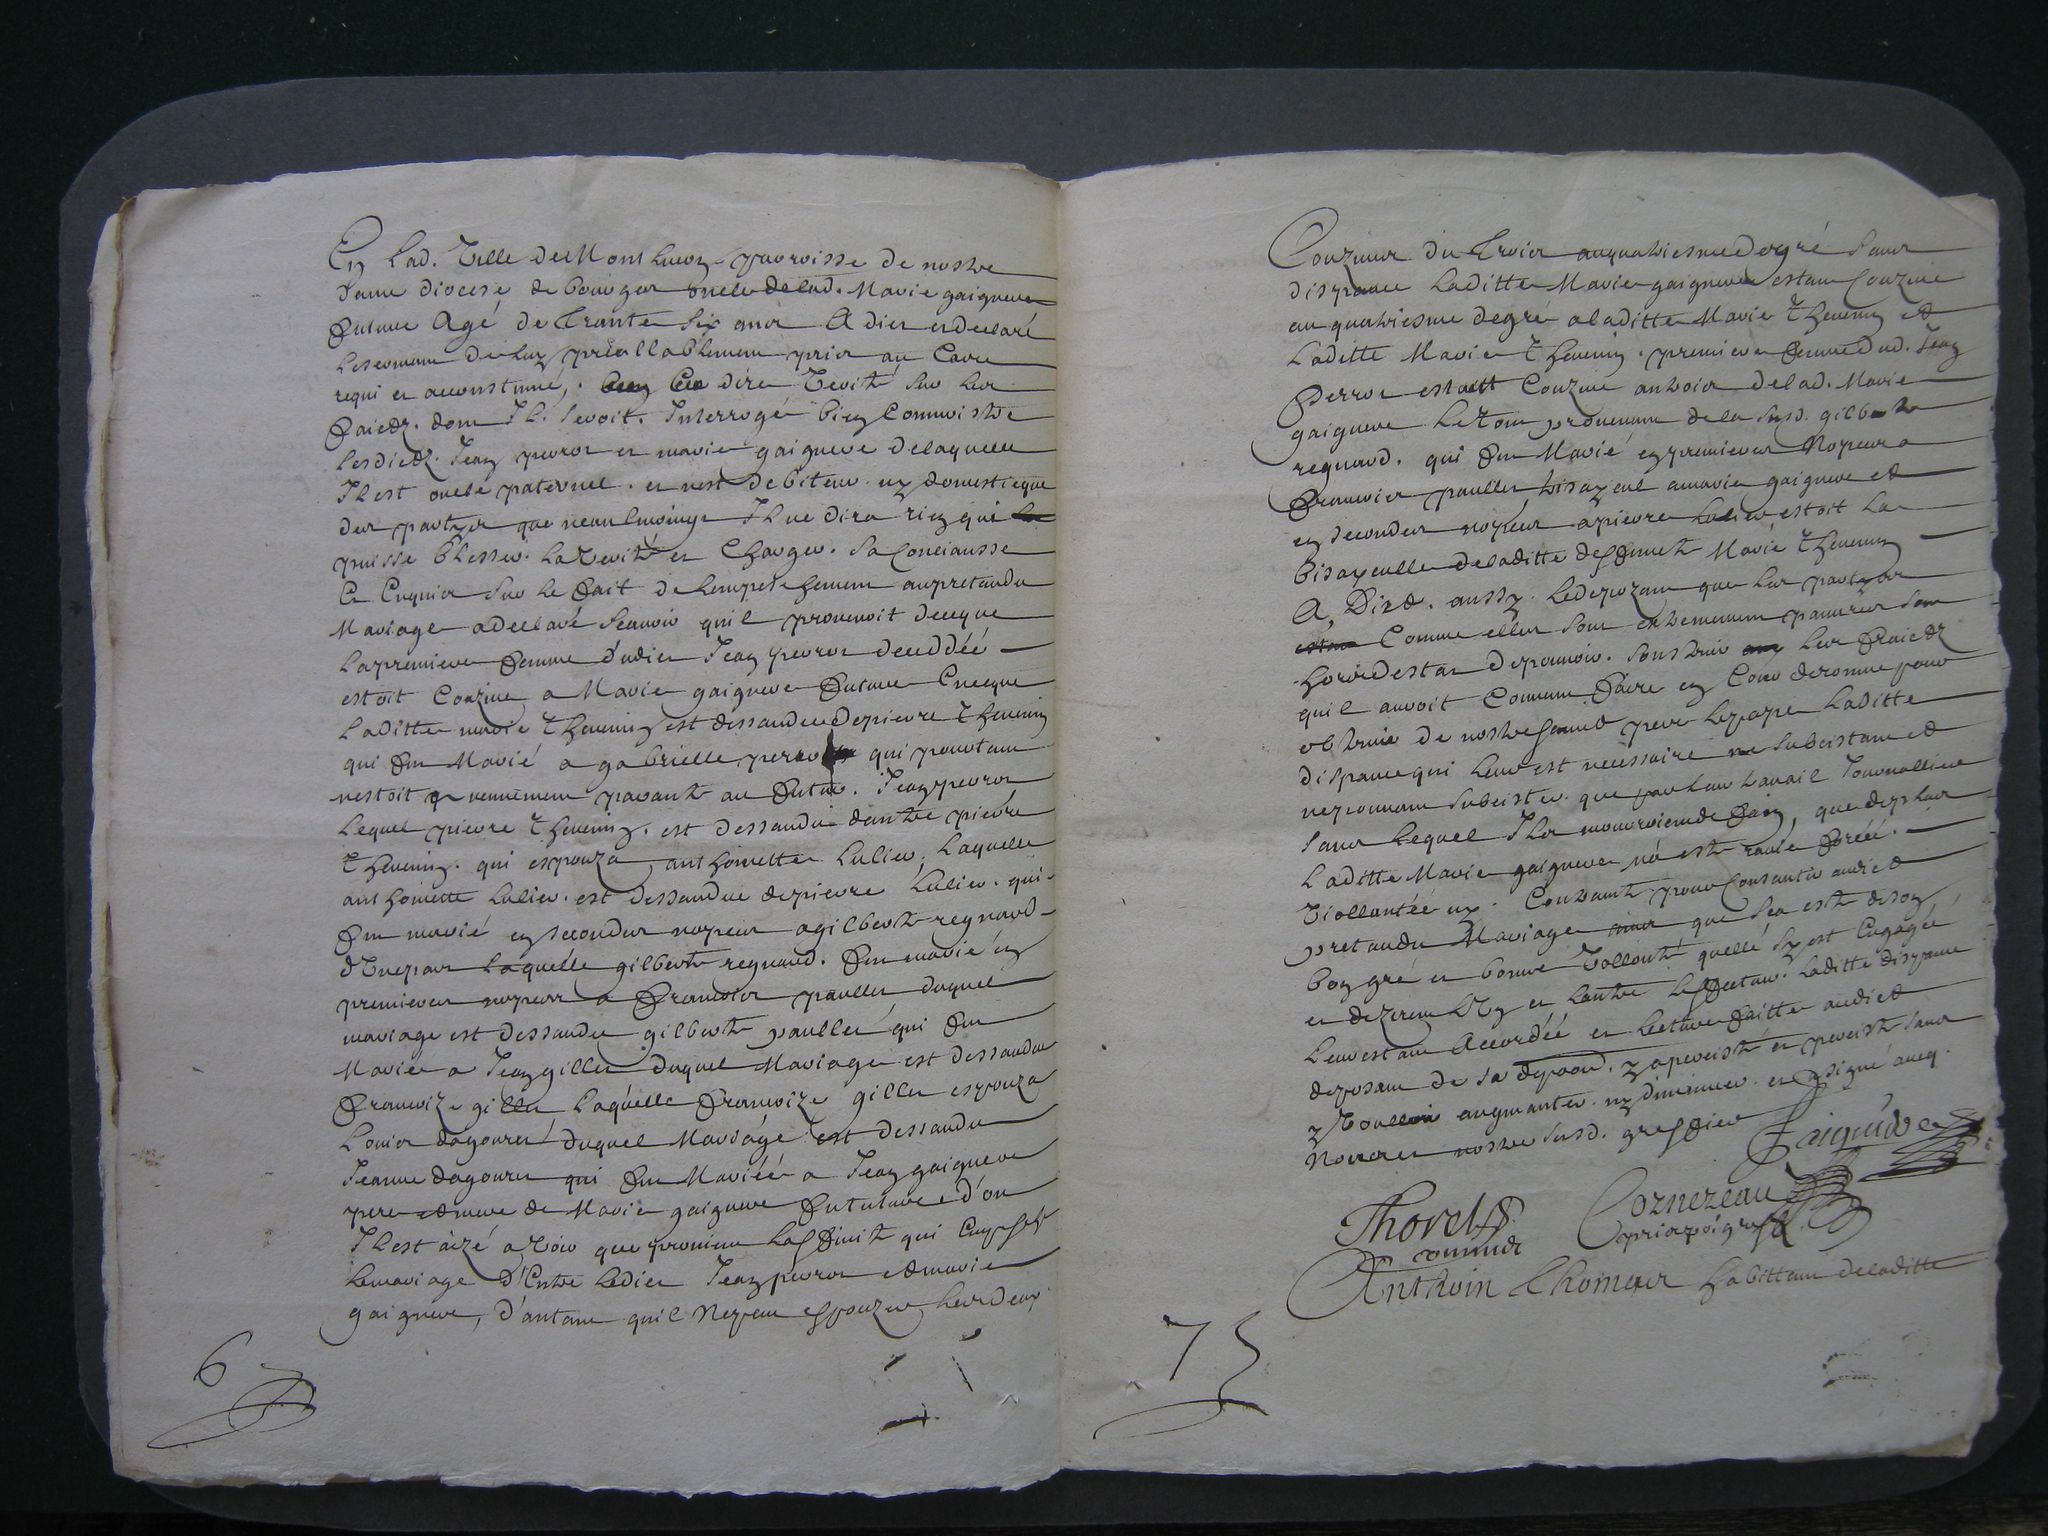 En lad. Ville de Montlucon parroisse de nostre
dame diocese de bourges oncle de lad. Marie gaignere
future Agé de Trante six ans A dict en declaré
le serment de luy preallablement pris au Cas
requis et accoustumé, Ces dire Verité sur les
Faictz. dont Il. seroit. Interrogé bien Connoistre
lesdictz. Jean perrot et marie gaignere de laquelle
Il est oncle paternel. et nest debiteur ny domesticque
des partyes que neantmoings Il ne dira rien qui
puisse blesser. la Verité et Charger. sa Consiansse
Et Enquis sur le Fait de lempeschement au pretandu
Mariage a declaré scavoir quil provenoit de ce que
la premiere femme dudict Jean perrot deceddéé
estoit Couzine a Marie gaignere Future En ce que
laditte marie Thevenin est dessandue de pierre Thevenin
qui Fut Marié a gabrielle perrot qui pourtant
nestoit nunement parante au Futur. Jean perrot
lequel pierre Thevenin. est dessandu dautre pierre
Thevenin. qui espouza anthoinette lulier. laquelle
anthoinette lulier. est dessandue de pierre lulier. qui
Fut marié en secondes nopces a gilberte regnaud
d'Unepar laquelle gilberte regnaud. Fut marié en
premieres nopces a Francois paulles duquel
mariage est dessandu gilberte paulles qui Fut
Mariée a Jean gilles duquel Mariage est dessandu
Francoize gilles laquelle Francoize gilles espouza
Louis dagouret duquel Mariage est dessandu
Jeanne dagouret qui Fut Mariéé a Jean gaignere
pere et mere de Marie gaignere Future d'ou
Il est aizé a Voir que provient laffinité qui Empesche
le mariage d'Entre ledict Jean perrot et marie
gaignere, d'autant quil ne peut espouzer les deux
6
Couzines du Trois au quatriesme degré sans
dispance laditte Marie gaignere estant Couzine
au quatriesme degré a laditte Marie Thevenin et
laditte Marie Thevenin. premiere femme dud. Jean
Perrot estoit Couzine au trois de lad. Marie
gaignere le tout provenant de la susd. gilberte
regnaud. qui Fut Marié en premieres Nopces a
Francois paulles bisayeul a marie gaignere et
en secondes nopces a pierre lulier estoit la
bisayeulle de laditte deffuncte Marie Thevenin
A, Dict. aussy. le depozant que les partyes
Comme elles sont extremement pauvres sont
hors destat de pouvoir. soustenir les Fraictz
quil auroit Convenu Faire en Cour de rome pour
obtenir de nostre sainct pere le pape laditte
dispance qui leur est necessaire ne subcistant et
ne pouvant subcister que par leur travail Journallier
sans lequel Ilz mouroient de Fain, que de plus
laditte Marie gaignere na esté ravie Forcéé.
Viollantéé ny. Contrainte pour Consantir audict
pretandu Mariage mais que sa esté de son
bon gré et bonne Vollonté quelle sy est Engagéé
et dezirent l'Un et lautre leffectuer. laditte dispance
leur estant Accordéé et lecture Faitte audict
deposant de sa depozon. y a percisté et percist sans
y Voulloir augmanter. ny diminuer. et a signé avecq.
Nous et nostre susd. greffier
Gaignere
Thorel
commis
Coznezeau
Anthoin Thomas habittant de laditte
7